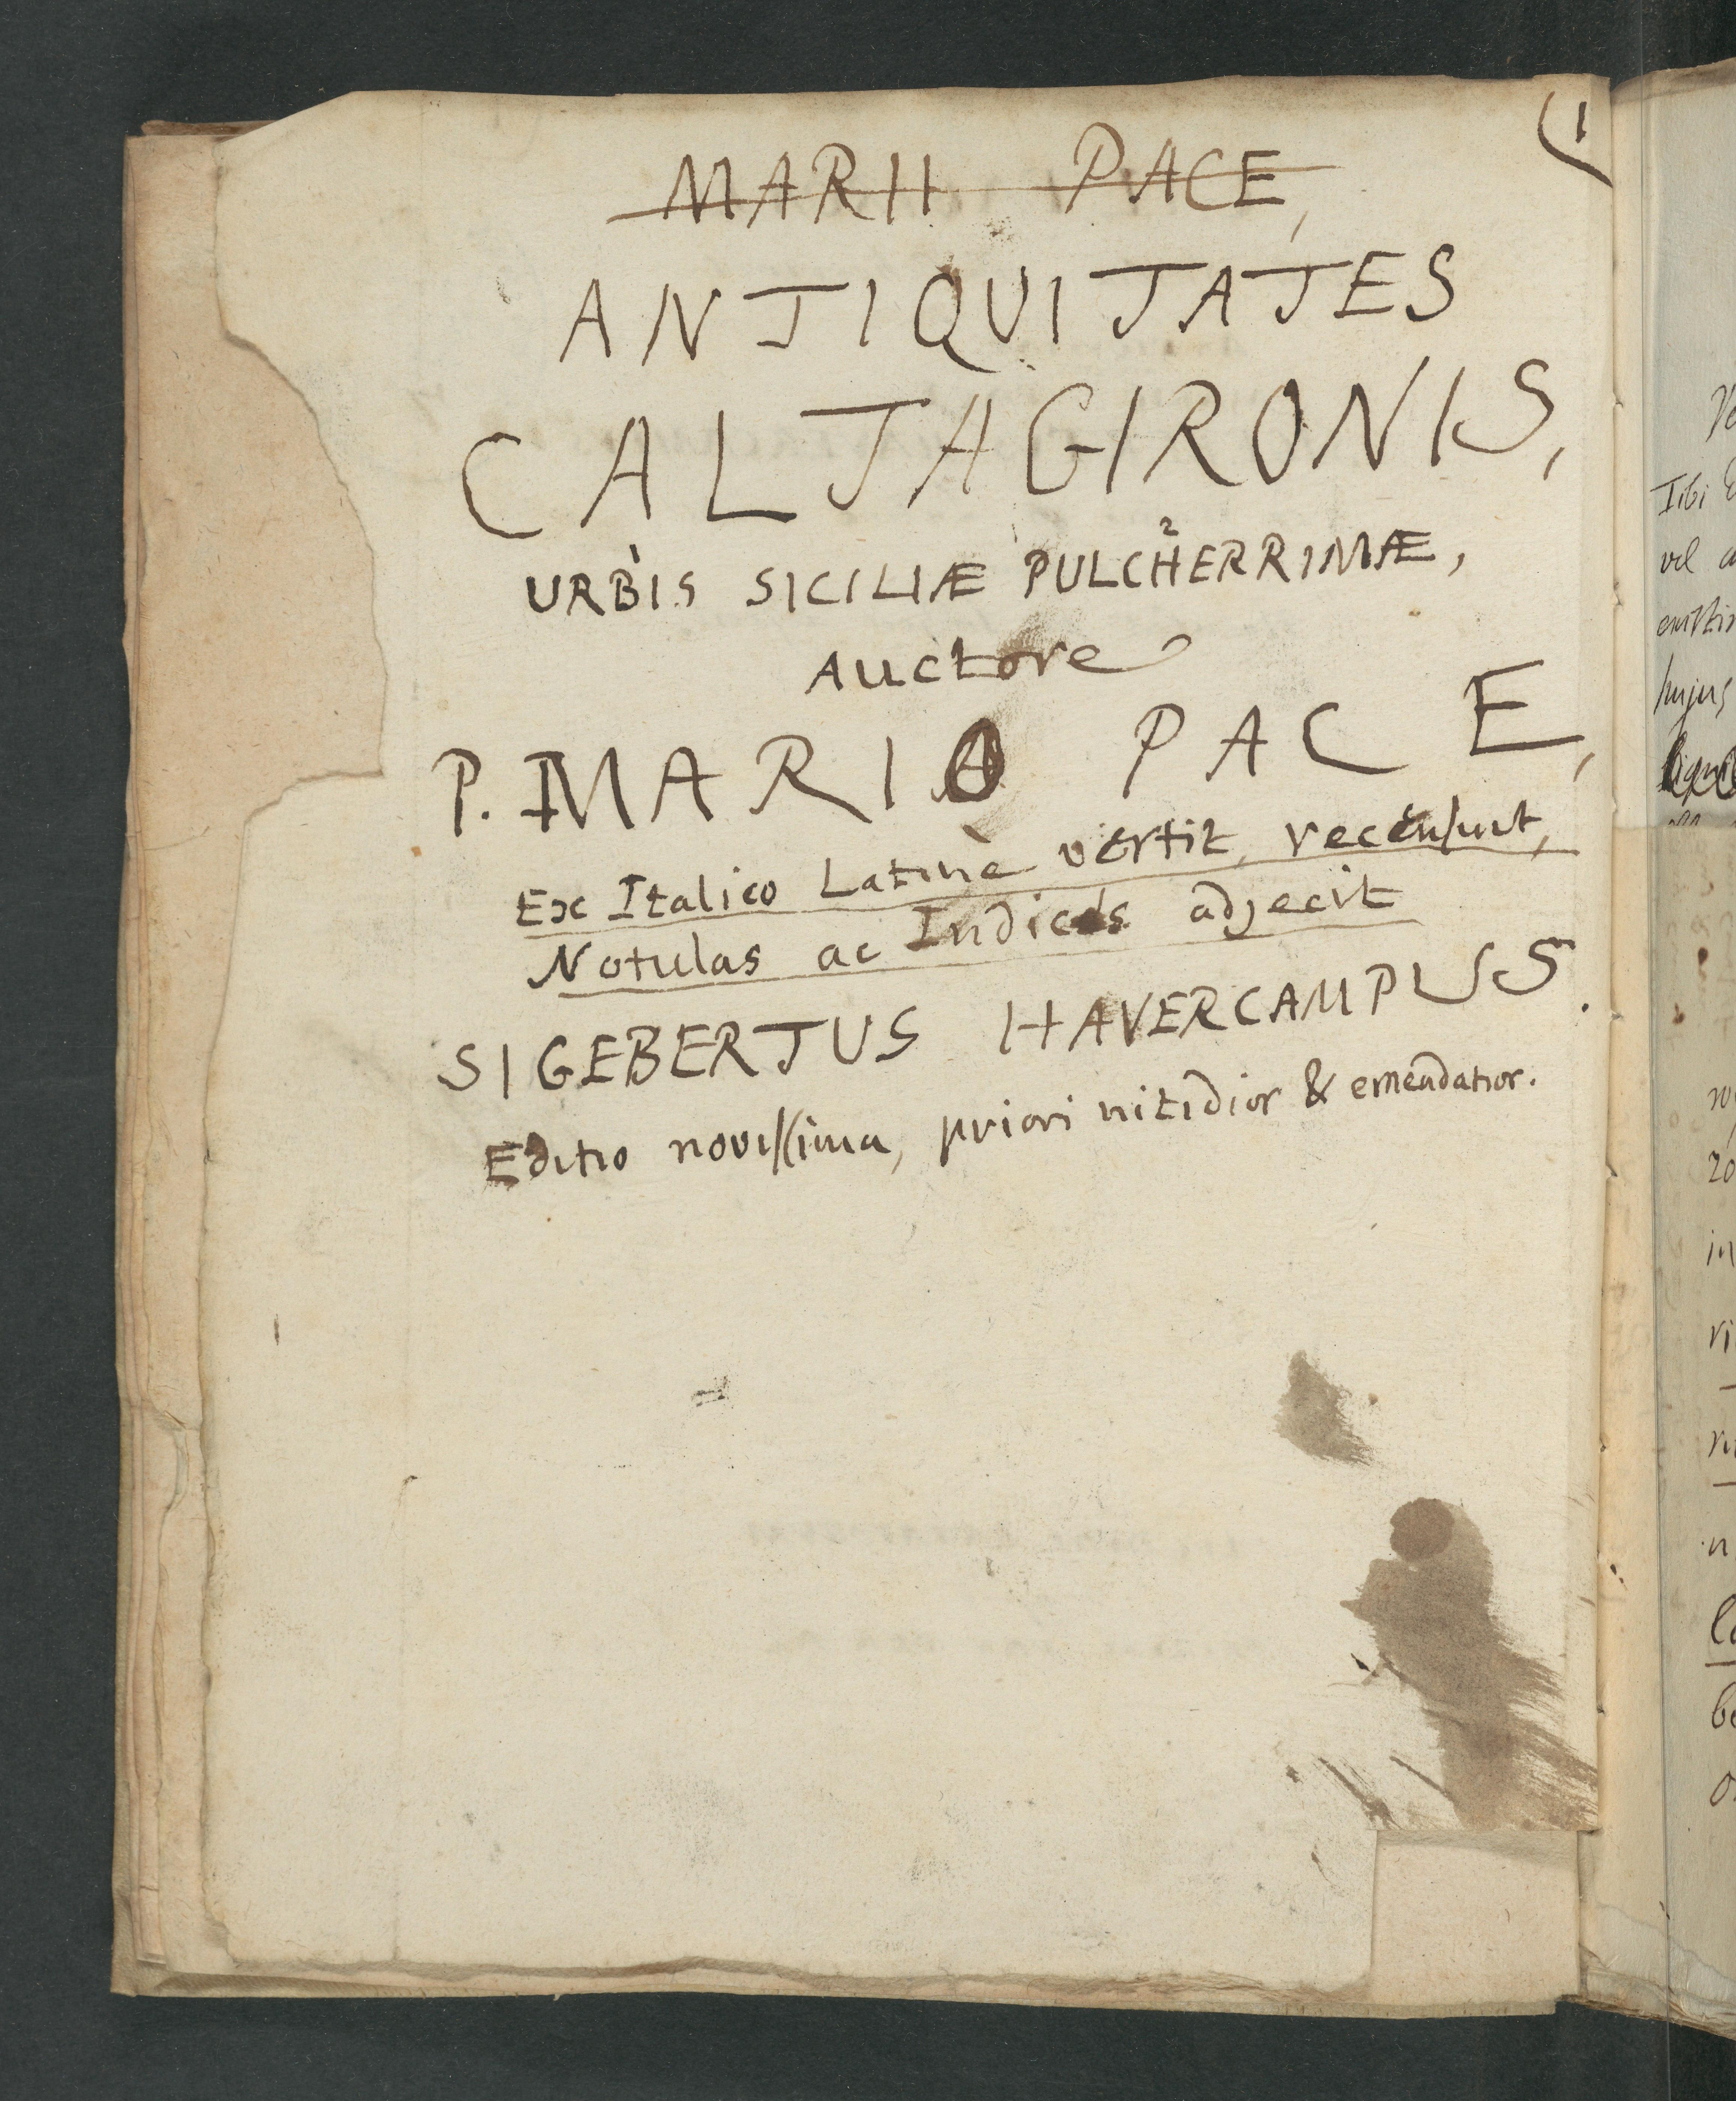 (1
MARII PACE,
ANTIQUITATES
CALTAGIRONIS,
URBIS SICILIÆ PULCHERRIMÆ,
Auctore
P. MARIO PACE,
Ex Italico Latinè vertit, recensuit,
Notulas ac Indices adjecit
SIGEBERTUS HAVERCAMPUS.
Editio novissima, priori nitidior & emendatior.
Tibi
vel
hujus